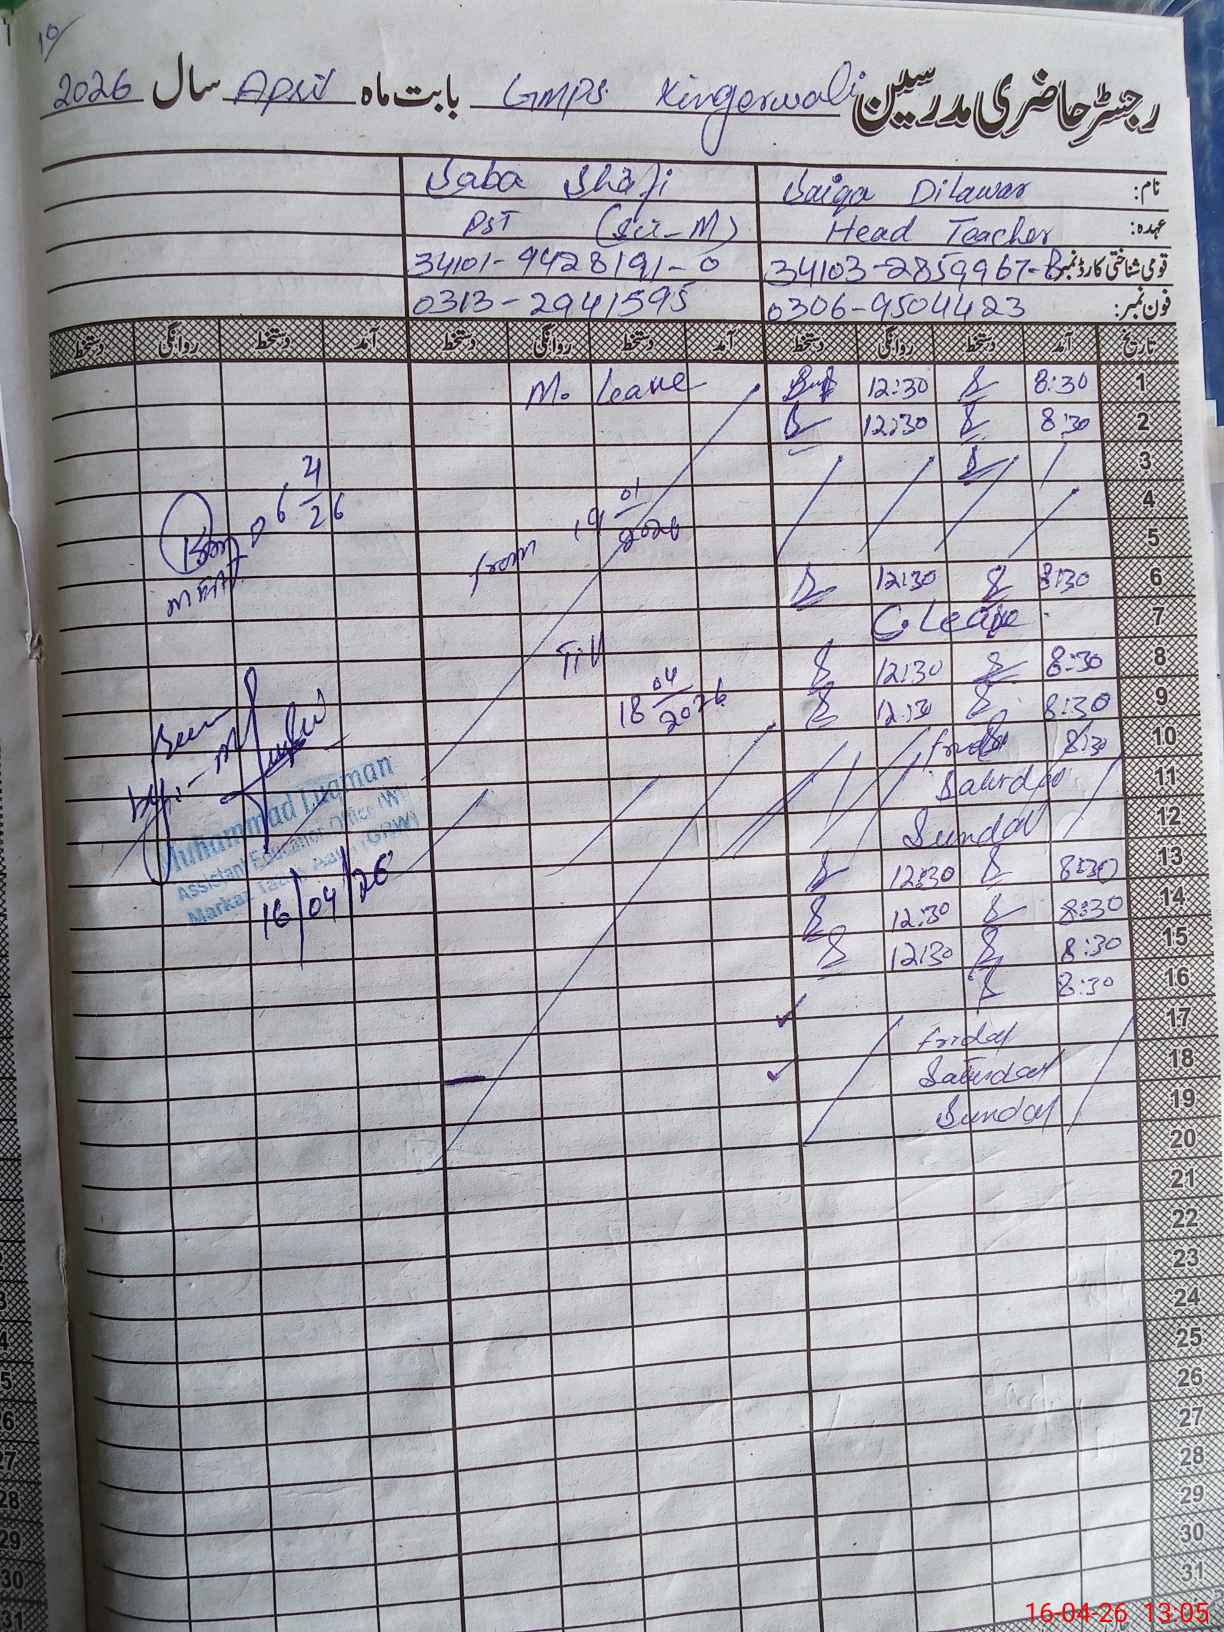 10
رجسٹر حاضری مدرسین GMPS Kingerwali بابت ماہ April سال 2026
نام: Saiqa Dilawar Saba Shafi
عہدہ: Head Teacher PST (Sci-M)
قومی شناختی کارڈ نمبر 34103-2859967- 34101-9428191-0
فون نمبر: 0306-9504423 0313-2941595
تاریخ آمد دستخط روانگی دستخط آمد دستخط روانگی دستخط آمد دستخط روانگی دستخط
1 8:30 12:30 M. Leave
2 8:30 12:30
3
4
5
from 19 01/2026
6 4/26
6 8:30 12:30
7 C. Leave
8 8:30 12:30
Till 18 04/2026
9 8:30 12:30
10 Friday 8:30
11 Saturday
12 Sunday
13 8:30 12:30
14 8:30 12:30
15 8:30 12:30
16 8:30
17 Friday
18 Saturday
19 Sunday
20
21
22
23
24
25
26
27
28
29
30
31
Muhammad Luqman
Assistant Education Officer
Markaz
16/04/26
16-04-26 13:05